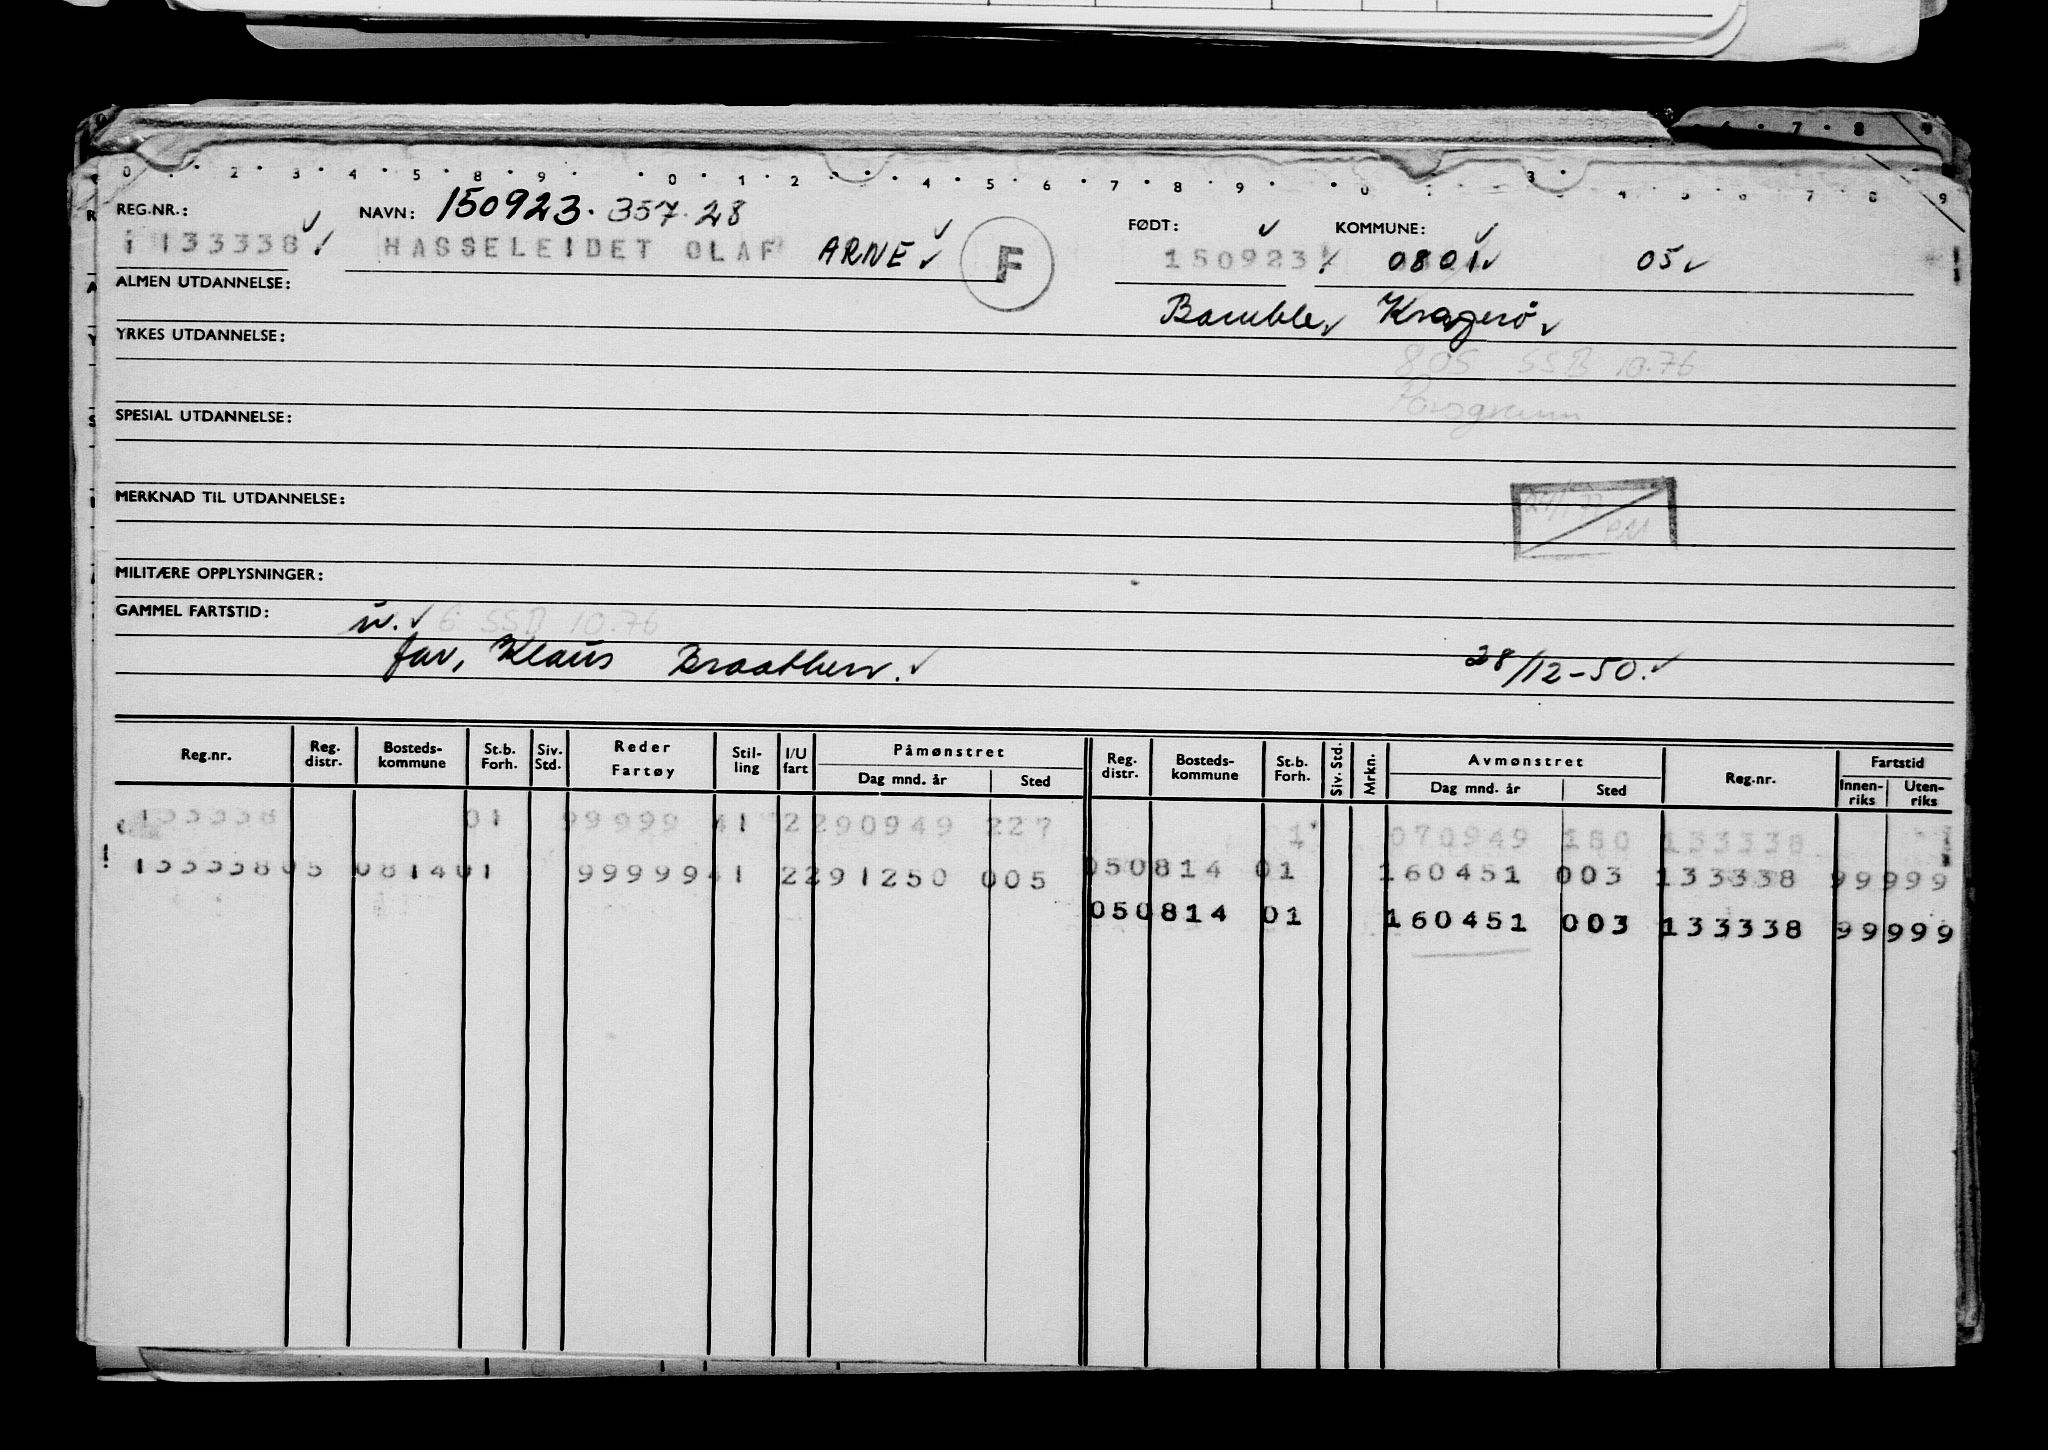 6 . 7 . 8 . 9
0 . 2 . 3 . 4 . 5 . 8 . 9 . 0 . 1 . 2 . 4 . 5 . 6 . 7 . 8 . 9 . 0 3 . 4 5 6 7 8 9
REG.NR.: NAVN: 150923. 357.28 FØDT: KOMMUNE:
1 133338 HASSELEIDET OLAF ARNE F 150923 0801 05
ALMEN UTDANNELSE: Bamble Kragerö
YRKES UTDANNELSE:
805 SSB 10.76
Porsgrunn
SPESIAL UTDANNELSE:
MERKNAD TIL UTDANNELSE:
MILITÆRE OPPLYSNINGER:
GAMMEL FARTSTID: u. 6 SSB 10.76
far, Klaus Braathen. 28/12-50.
Reg.nr. Reg. distr. Bosteds-kommune St.b. Forh. Siv. Std. Reder Fartøy Stil-ling I/U fart Påmønstret Dag mnd. år Sted Reg. distr. Bosteds-kommune St.b. Forh. Siv. Std. Mrkn. Avmønstret Dag mnd. år Sted Reg.nr. Fartstid Innen-riks Uten-riks
133338 01 99999 41 2 290949 227 1 070949 180 133338
133338 05 0814 01 99999 41 2 291250 005 05 0814 01 160451 003 133338 99 999
05 0814 01 160451 003 133338 99 999